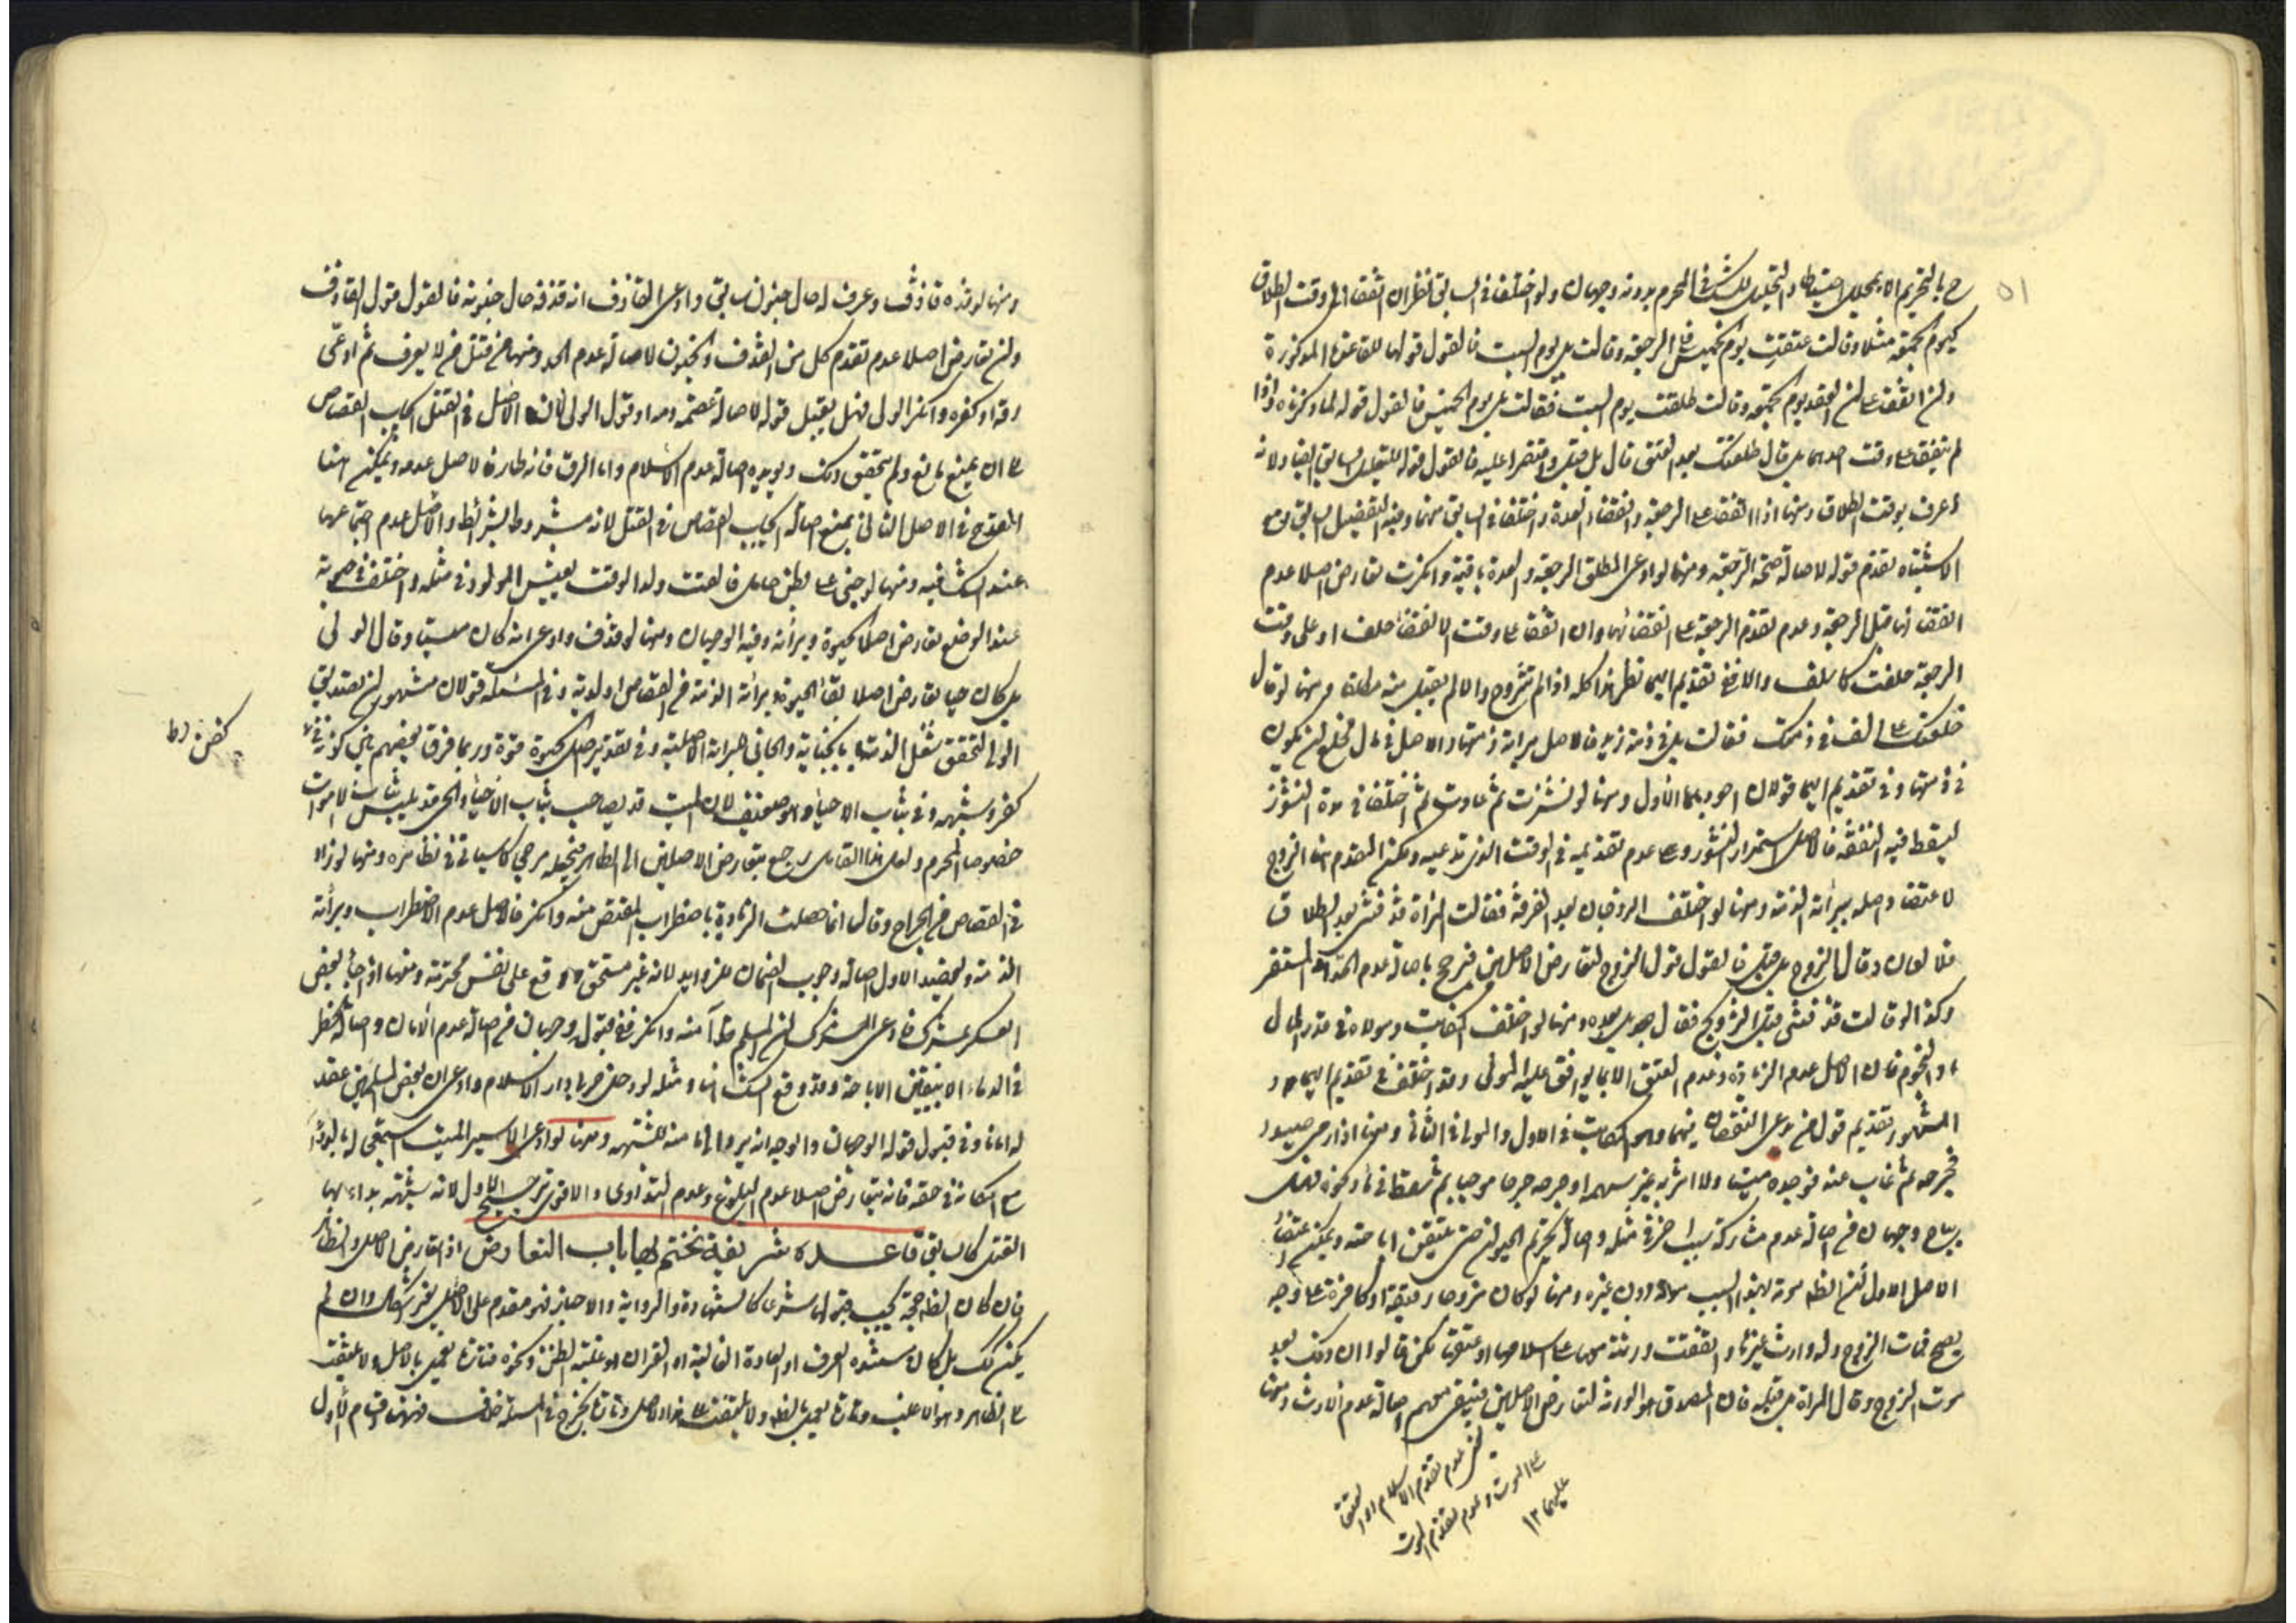 ٥١
بالتحريم الا بمحلل احتياطا والتحليل للشك في المحرم بدونه وجهان ولو اختلفا في السابق نظر ان اتفقا على وقت الطلاق
كيوم الجمعة مثلا وقالت عتقت يوم الخميس الرجعة وقالت بل يوم السبت فالقول قولها للقاعدة المذكورة
ولن اتفقا على لن العقد يوم الجمعة وقالت طلقت يوم السبت فقالت بل يوم الخميس فالقول قوله لما ذكرناه واذا
لم يتفقا على وقت احدهما بل قال طلقتك بعد العتق قال بل قبله واقتصرا عليه فالقول قوله للتعليل السابق ايضا ولانه
اعرف بوقت الطلاق ومنها اذا اتفقا على الرجعة وانقضاء العدة واختلفا في السابق منهما وفيه التفصيل السابق ومع
الاشتباه تقدم قوله لاصالة صحة الرجعة ومنها لو ادعى المطلق الرجعة والعدة باقية وانكرت تعارض اصلا عدم
انقضائها قبل الرجعة وعدم تقدم الرجعة على انقضائها وان اتفقا على وقت الانقضاء حلف او على وقت
الرجعة حلفت كما سلف والا ففي تقديم ايهما نظر هذا كله اذا لم تتزوج والا لم يقبل منه مطلقا ومنها لو قال
خلعتك على الف في ذمتك فقالت بل في ذمة زيد فالاصل براءة ذمتها والاصل في مال الخلع لن يكون
في ذمتها وفي تقديم ايهما قولان اجودهما الاول ومنها لو نشزت ثم عادت ثم اختلفا في مدة النشوز
ليسقط فيه النفقة فالاصل استمرار النشوز وعدم تقديمه في الوقت الذي تدعيه ولكن المقدم هنا الزوج
لاعتضاد اصله ببرائة الذمة ومنها لو اختلف الزوجان بعد الفرقة فقالت المراة قذفتني بعد الطلاق
فلا لعان وقال الزوج بل قبله فالقول قول الزوج لتعارض الاصلين فيرجح باصالة عدم الحد المستقر
وكذا لو قالت قذفتني قبل التزويج فقال بل بعده ومنها لو اختلف المكاتب ومولاه في قدر المال
او النجوم فان الاصل عدم الزيادة وعدم العتق الا بما يوافق عليه المولى وقد اختلف في تقديم ايهما و
المشهور تقديم قول من يدعي النقصان فيهما وهو المكاتب في الاول والمولى في الثاني ومنها اذا رمى صيدا
فجرحه ثم غاب عنه فوجده ميتا ولا اثر به غير سهمه او جرحه جرحا موجبا ثم سقط في ماء ونحوه فهل
يباح وجهان من اصالة عدم مشاركة سبب اخر في مثله واصالة تحريم الحيوان حتى يتيقن اباحته ويمكن اعتضاد
الاصل الاول لان الظاهر موته بهذا السبب دون غيره ومنها لو كان متزوجا رقيقة او كافرة على وجه
يصح فمات الزوج وله وارث غيرها واتفقت ورثته معها على اسلامها او عتقها لكن قالوا ان ذلك بعد
موت الزوج وقال المراة بل قبله فان المصدق هو الورثة لتعارض الاصلين فيبقى معهم اصالة عدم الارث ومنها
عدم تقدم الاسلام او العتق
على الموت وعدم تقدم الموت
عليهما ١٢
ومنها لو قذفه قاذف وعرف له حال جنون سابق وادعى القاذف انه قذفه حال جنونه فالقول قول القاذف
ولن تعارض اصلا عدم تقدم كل من القذف والجنون لاصالة عدم الحد ومنها من قتل من لا يعرف ثم ادعى
رقه او كفره وانكر الولى فهل يقبل قوله لاصالة عصمة دمه او قول الولى لان الاصل في القتل ايجاب القصاص
الا ان يمنع مانع ولم يتحقق ذلك ويؤيده اصالة عدم الاسلام واما الرق فانه طار فالاصل عدمه ويمكن هنا
القدح في الاصل الثاني بمنع اصالة ايجاب القصاص في القتل لانه مشروط بشرائط والاصل عدم اجتماعها
عند الشك فيه ومنها لو جنى على بطن حامل فالقت ولدا لوقت يعيش المولود في مثله واختلف في حيوته
عند الوضع تعارض اصلا الحيوة وبرائته وفيه الوجهان ومنها لو قذف وادعى انه كان ميتا وقال الولى
بل كان حيا تعارض اصلا بقاء الحيوة وبرائة الذمة من القصاص او الدية وفي المسئلة قولان مشهوران لتصديق
الولى لتحقق شغل الذمة بالجناية والجاني للبراءة الاصلية وفي تقدير اصل الحيوة قوة وربما فرق بعضهم بين كونه في
كفن وشبهه وفي ثياب الاحياء وهو ضعيف لان الميت قد يصاحب ثياب الاحياء والحي قد يلبس ثياب الاموات
خصوصا المحرم ولعل هذا القائل رجع بتعارض الاصلين الى الظاهر فيجعله مرجحا كما سياتي في نظائره ومنها لو زاد
في القصاص من الجراح وقال انما حصلت الزيادة باضطراب المقتص منه وانكر فالاصل عدم الاضطراب وبرائة
الذمة ويعضد الاول اصالة وجوب الضمان للزوايد لانه غير مستحق وقع على نفس محترمة ومنها اذا جاء بعض
العسكر بمشرك فادعى المشرك لن المسلم آمنه وانكر ففي قبول وجهان من اصالة عدم الامان واصالة الحظر
في الدماء الا بيقين الاباحة وقد وقع الشك هنا ومثله لو دخل حربي دار الاسلام وادعى ان بعض المسلمين عقد
له امانا وفي قبول قوله الوجهان والوجه انه يرد الى مامنه للشبهة ومنها لو ادعى الاسير المنبت استعجاله بالدواء
مع امكانه في حقه فانه يتعارض اصلا عدم البلوغ وعدم التداوي والاقوى ترجيح الاول لانه شبهة يدرء بها
القتل كما سبق قاعدة شريفة نختتم بها باب التعارض اذا تعارض الاصل والظاهر
فان كان الظاهر حجة يجب قبولها شرعا كالشهادة والرواية والاخبار فهو مقدم على الاصل بغير اشكال وان لم
يكن كذلك بل كان مستنده العرف او العادة الغالبة او القرائن او غلبة الظن ونحوه فتارة يعمل بالاصل ولا يلتفت
الى الظاهر وهو الاغلب وتارة يعمل بالظاهر ولا يلتفت الى هذا الاصل وتارة يخرج في المسئلة خلاف فهنا اقسام الاول